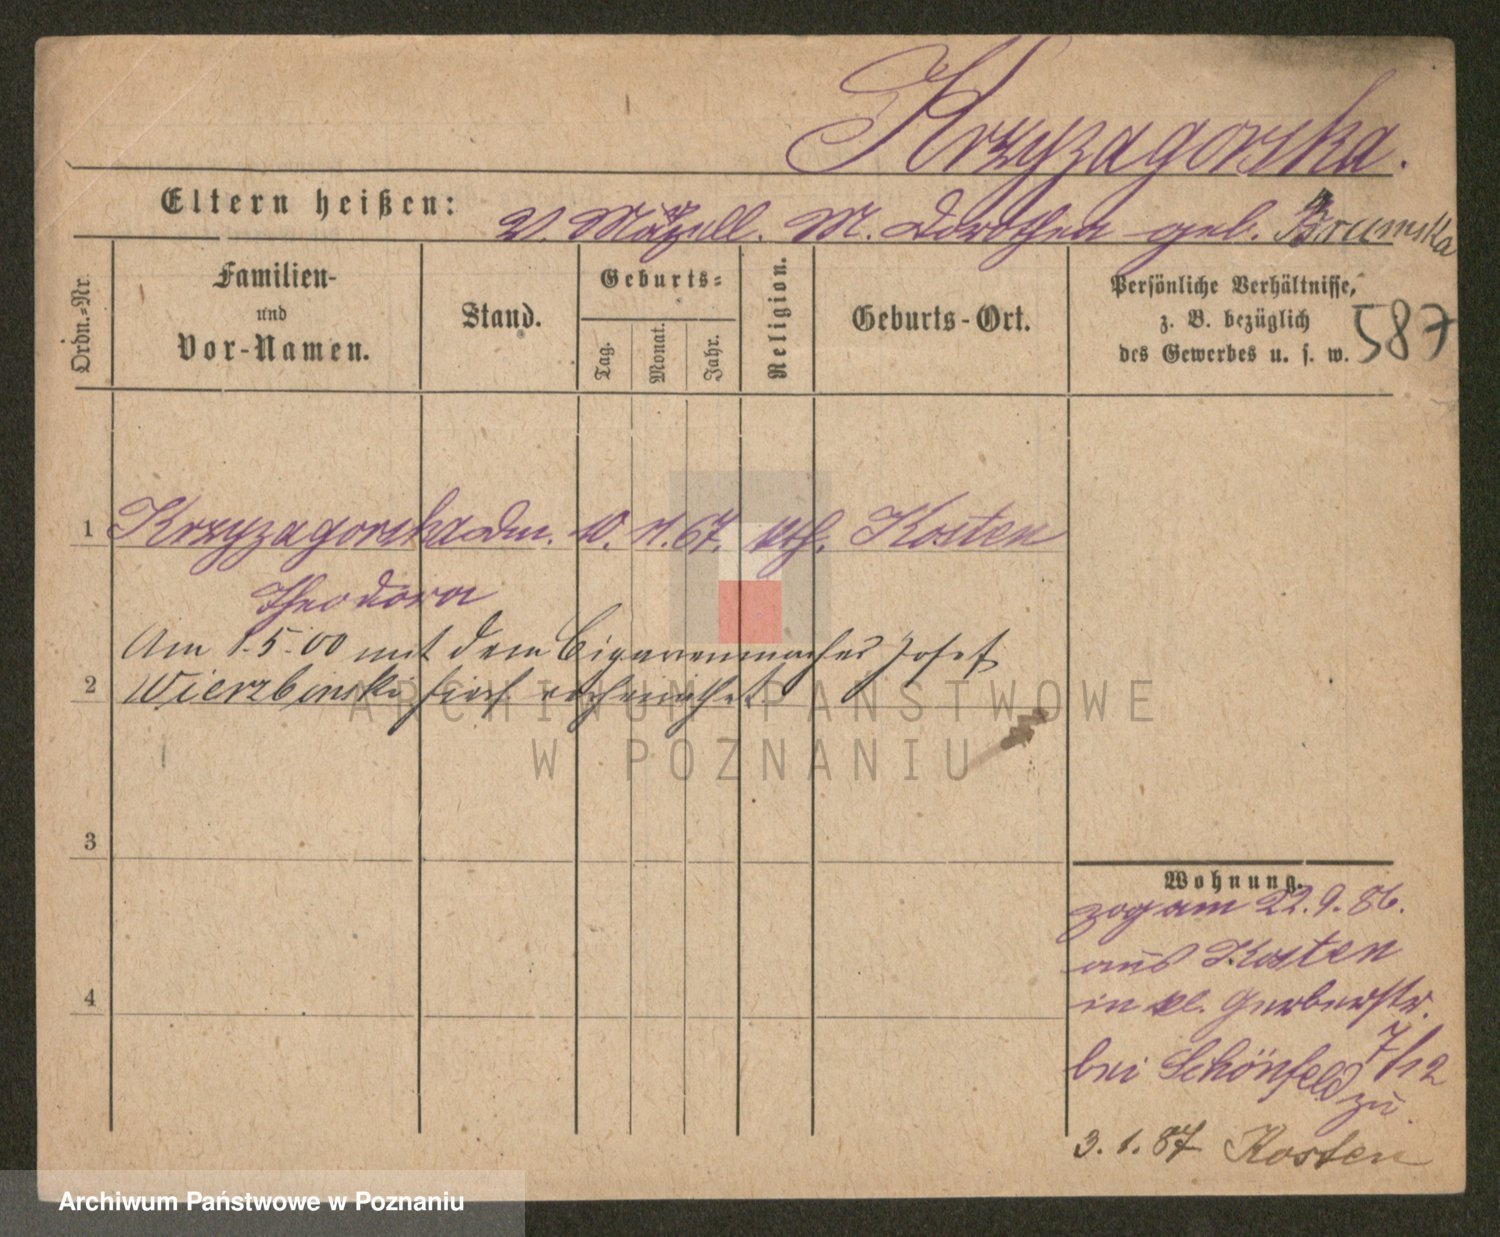 Krzyzagorska.
Eltern heißen: V. M. Dorothea geb.
Ordn.-Nr.
Familien-
und
Vor-Namen.
Stand.
Geburts-
Tag.
Monat.
Jahr.
Religion.
Geburts-Ort.
Persönliche Verhältnisse,
z. B. bezüglich
des Gewerbes u. s. w.
587
1 Krzyzagorska Dm. 10. 11. 67. kth. Kosten
Theodora
Am 1.5.00 mit dem Cigarrenmacher Josef
2 Wierzbinski hier verheirathet.
ARCHIWUM PAŃSTWOWE
W POZNANIU
3
4
Wohnung.
zog am 22.9.86.
aus Kosten
in kl. Gerberstr.
7/12
bei Schönfeld zu
3.1.87 Kosten
Archiwum Państwowe w Poznaniu